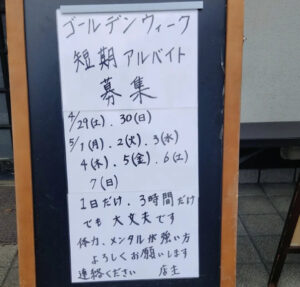 ゴールデンウィーク
短期アルバイト
募集
4/29(土).30(日)
5/1(月).2(火).3(水)
4(木).5(金).6(土)
7(日)
1日だけ.3時間だけ
でも大丈夫です
体力、メンタルが強い方
よろしくお願いします
連絡ください 店主